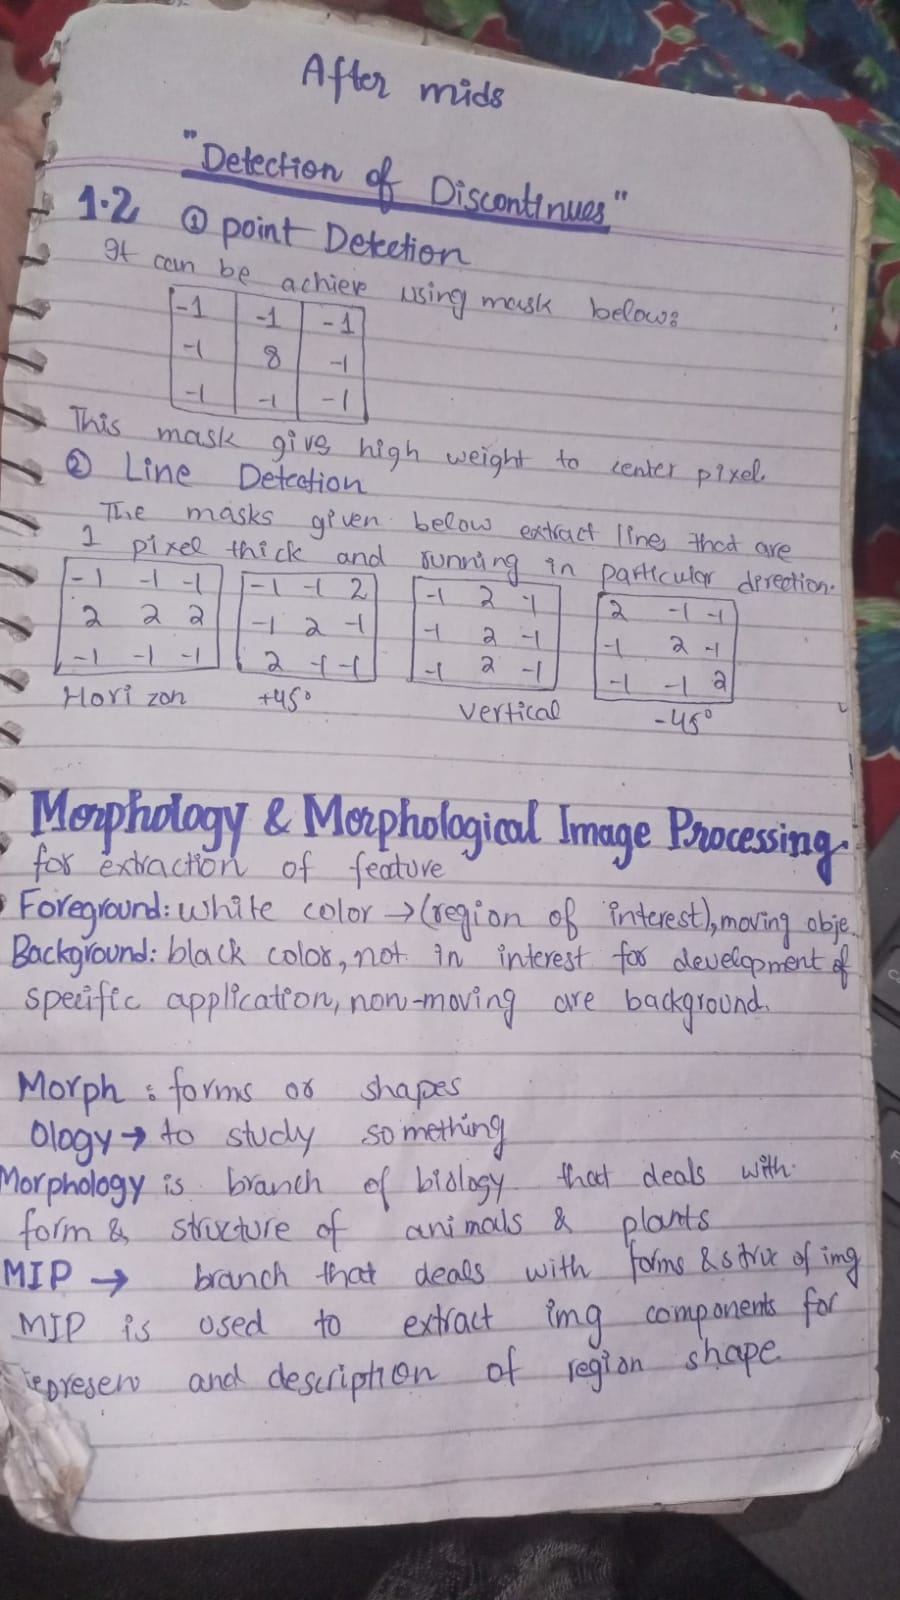 After mids
"Detection of Discontinues"
1.2 ① point Detection
It can be achieve using mask below:
-1 -1 -1
-1 8 -1
-1 -1 -1
This mask give high weight to center pixel.
② Line Detection
The masks given below extract lines that are
1 pixel thick and running in particular direction.
-1 -1 -1 -1 -1 2 -1 2 -1 2 -1 -1
2 2 2 -1 2 -1 -1 2 -1 -1 2 -1
-1 -1 -1 2 -1 -1 -1 2 -1 -1 -1 2
Horizon +45° vertical -45°
Morphology & Morphological Image Processing.
for extraction of feature
Foreground: white color → (region of interest), moving obje.
Background: black color, not in interest for development of
specific application, non-moving are background.
Morph : forms or shapes
Ology → to study something
Morphology is branch of biology that deals with
form & structure of animals & plants
MIP → branch that deals with forms & struc of img
MIP is used to extract img components for
represen and description of region shape